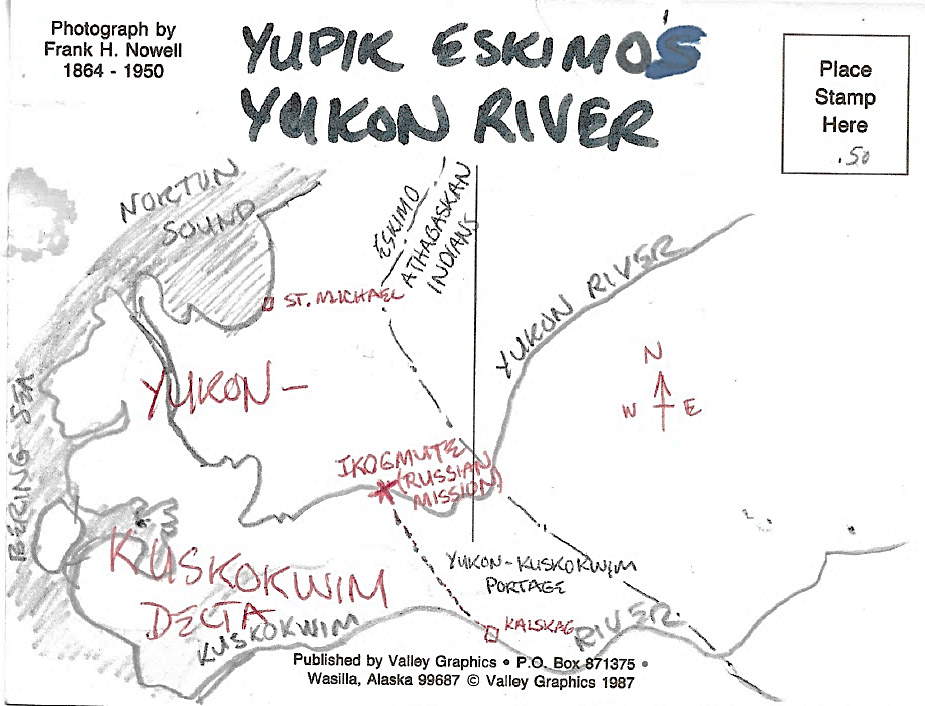 Photograph by
Frank H. Nowell
1864 - 1950
YUPIK ESKIMO'S
YUKON RIVER
Place
Stamp
Here
.50
NORTON
SOUND
ESKIMO
ATHABASKAN
INDIANS
ST. MICHAEL
YUKON RIVER
N
W E
YUKON-
BERING SEA
IKOGMUTE
(RUSSIAN
MISSION)
KUSKOKWIM
DELTA
YUKON-KUSKOKWIM
PORTAGE
KALSKAG
KUSKOKWIM RIVER
Published by Valley Graphics • P.O. Box 871375 •
Wasilla, Alaska 99687 © Valley Graphics 1987